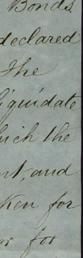 Bonds
declared
The
liquidate
which the
ent, and
ken for
for